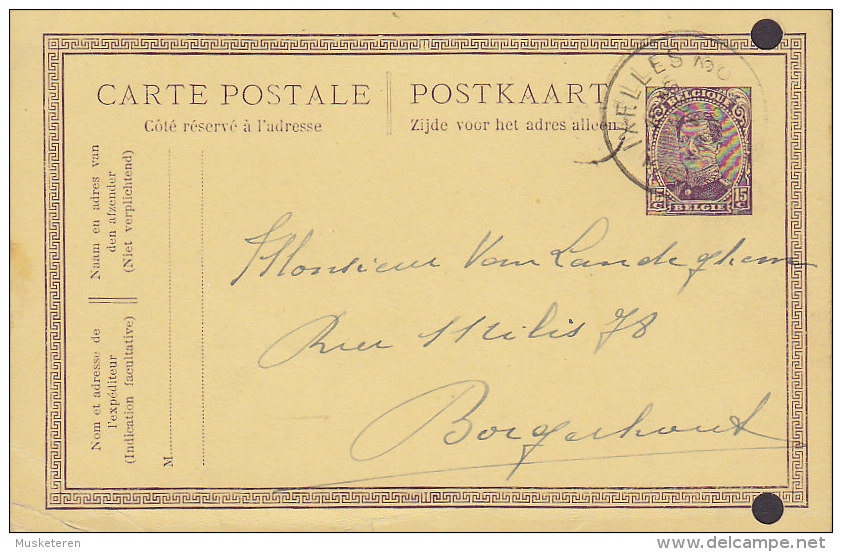 CARTE POSTALE
Côté réservé à l'adresse
POSTKAART
Zijde voor het adres alleen.
IXELLES
BELGIQUE
15 C 15 C
BELGIË
Naam en adres van
den afzender
(Niet verplichtend)
Nom et adresse de
l'expéditeur
(Indication facultative)
M
Monsieur Van Landeghem
Rue 78
Borgerhout
Musketeren
delcampe.net